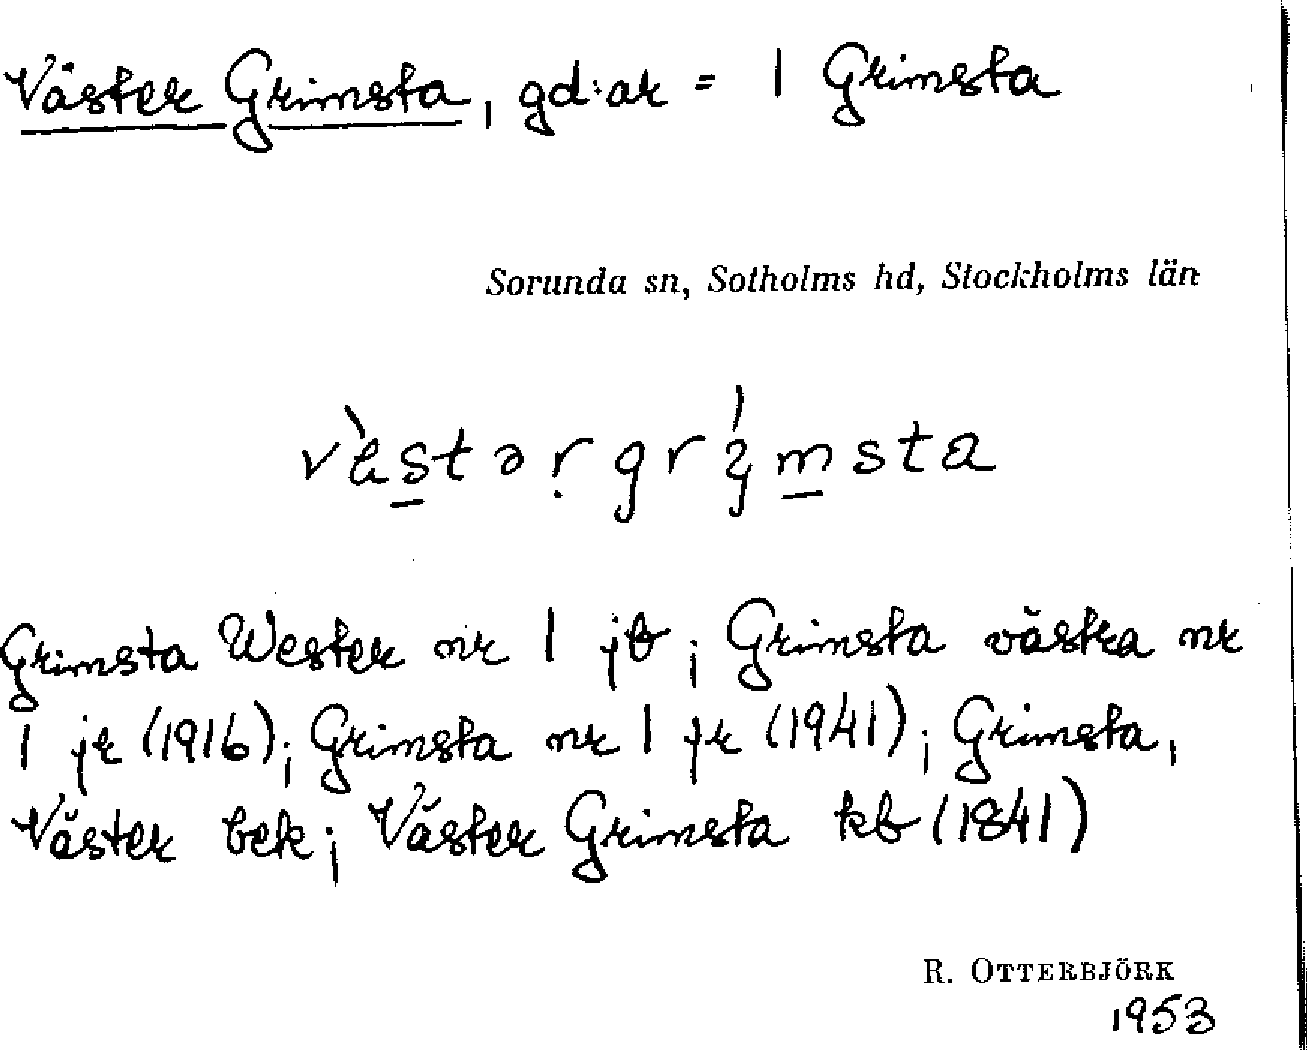 Väster Grimsta, gd:ar = 1 Grimsta
Sorunda sn, Sotholms hd, Stockholms län
Grimsta Wester nr 1 jb; Grimsta västra nr
1 jr (1916); Grimsta nr 1 jr (1941); Grimsta,
Väster bek; Väster Grimsta kb (1841)
R. OTTERBJÖRK
1953